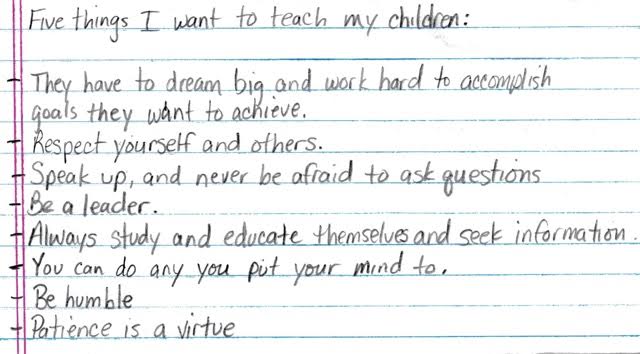 Five things I want to teach my children:
- They have to dream big and work hard to accomplish
goals they want to achieve.
- Respect yourself and others.
- Speak up, and never be afraid to ask questions
- Be a leader.
- Always study and educate themselves and seek information.
- You can do any you put your mind to.
- Be humble
- Patience is a virtue